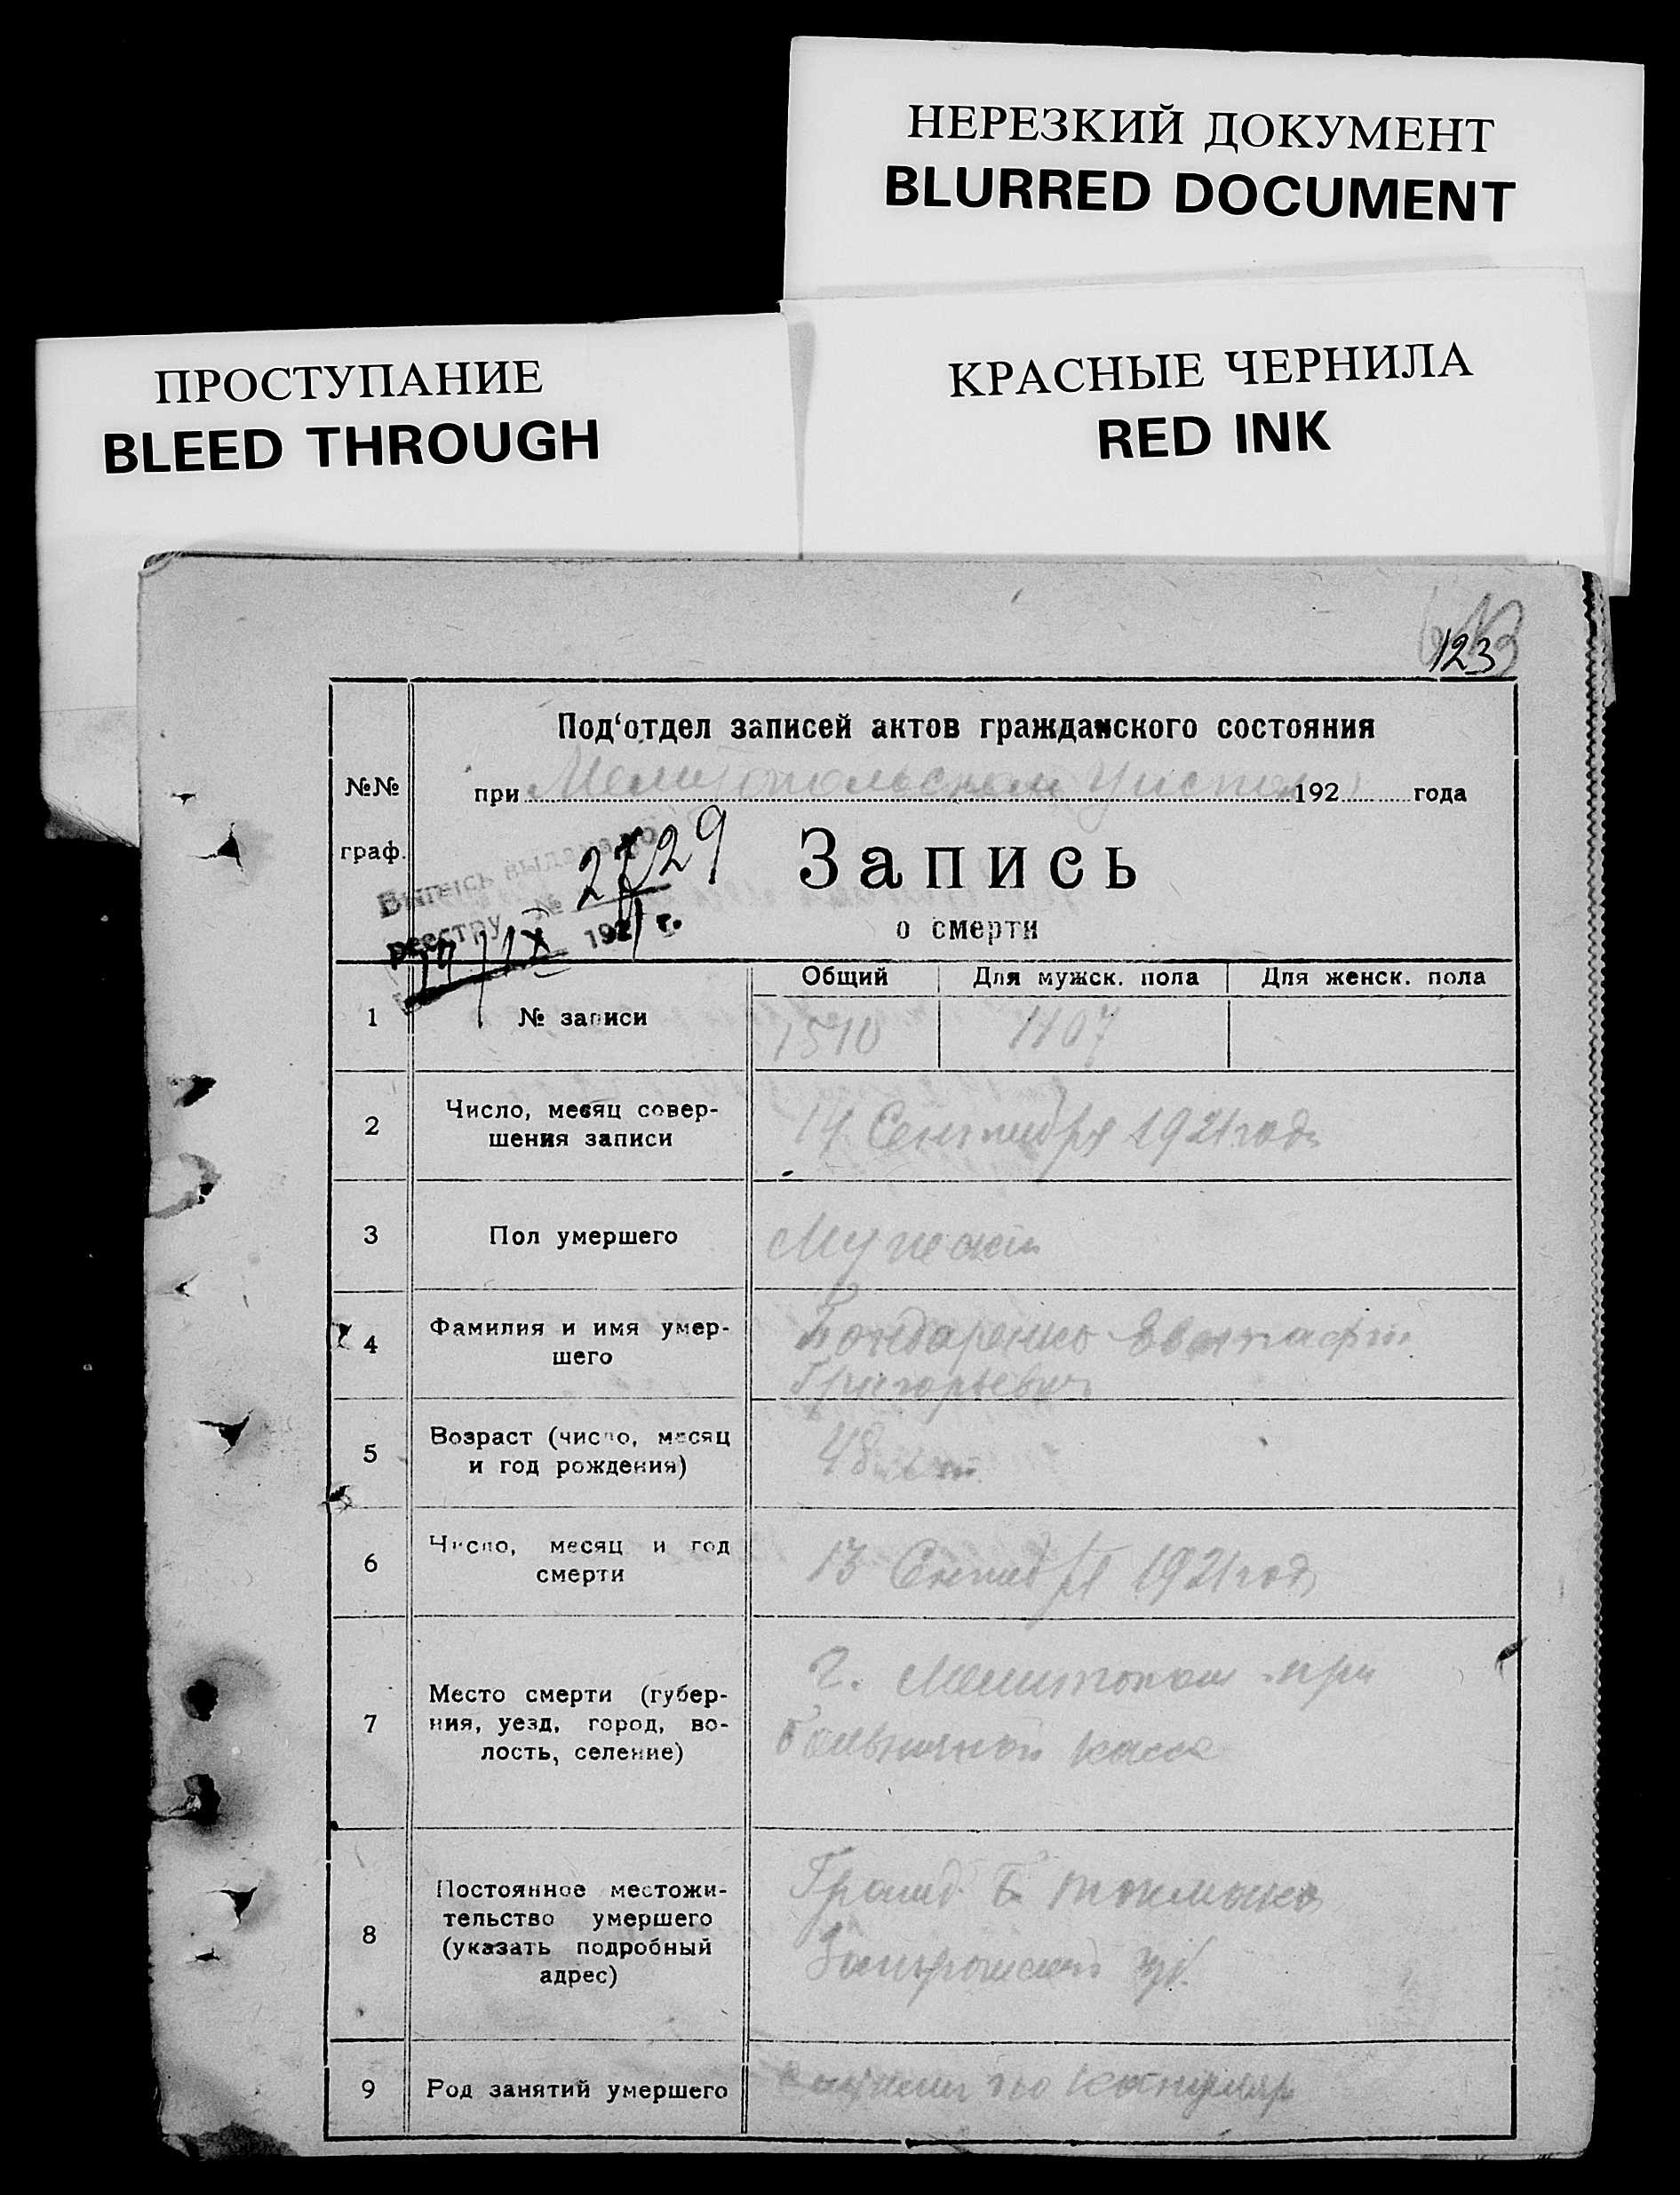 НЕРЕЗКИЙ ДОКУМЕНТ
BLURRED DOCUMENT
ПРОСТУПАНИЕ
BLEED THROUGH
КРАСНЫЕ ЧЕРНИЛА
RED INK
123
Под‘отдел записей актов гражданского состояния
№№
граф.
при Мелитопольском 192 года
Запись
о смерти
Выпись выдана по
реестру № 2729
192 г.
Общий Для мужск. пола Для женск. пола
1 № записи 1510 1107
2 Число, месяц совер-
шения записи
14 Сентября 1921 года
3 Пол умершего
4 Фамилия и имя умер-
шего
Бондаренко Евстафий
Григорьевич
5 Возраст (число, месяц
и год рождения)
48 лет
6 Число, месяц и год
смерти
13 Сентября 1921 года
7 Место смерти (губер-
ния, уезд, город, во-
лость, селение)
г. Мелитополь при
больничной касса
8 Постоянное местожи-
тельство умершего
(указать подробный
адрес)
Гражд. Б Токмака
9 Род занятий умершего